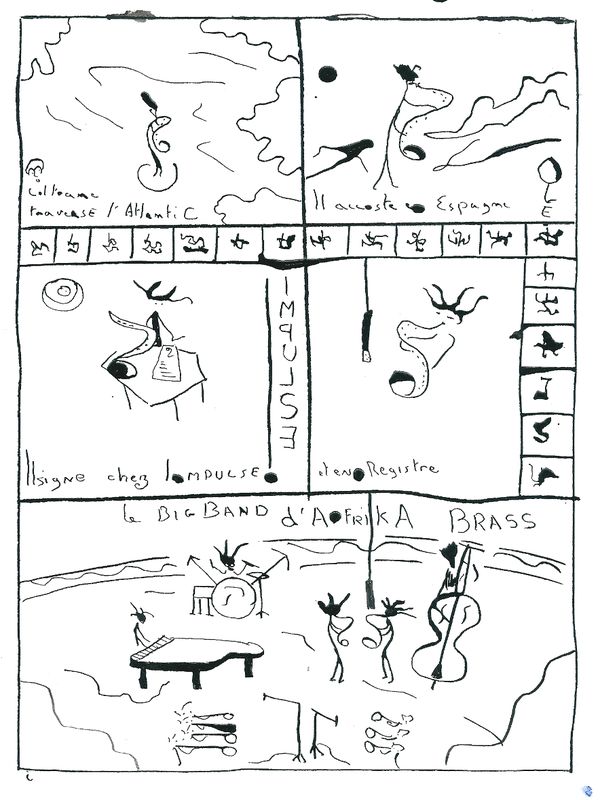 Coltrane
traverse l'AtlantiC
Il accoste en Espagne
OLE
IMPULSE
Il signe chez IMPULSE.
et en Registre
le BIG BAND d'AFRIKA BRASS